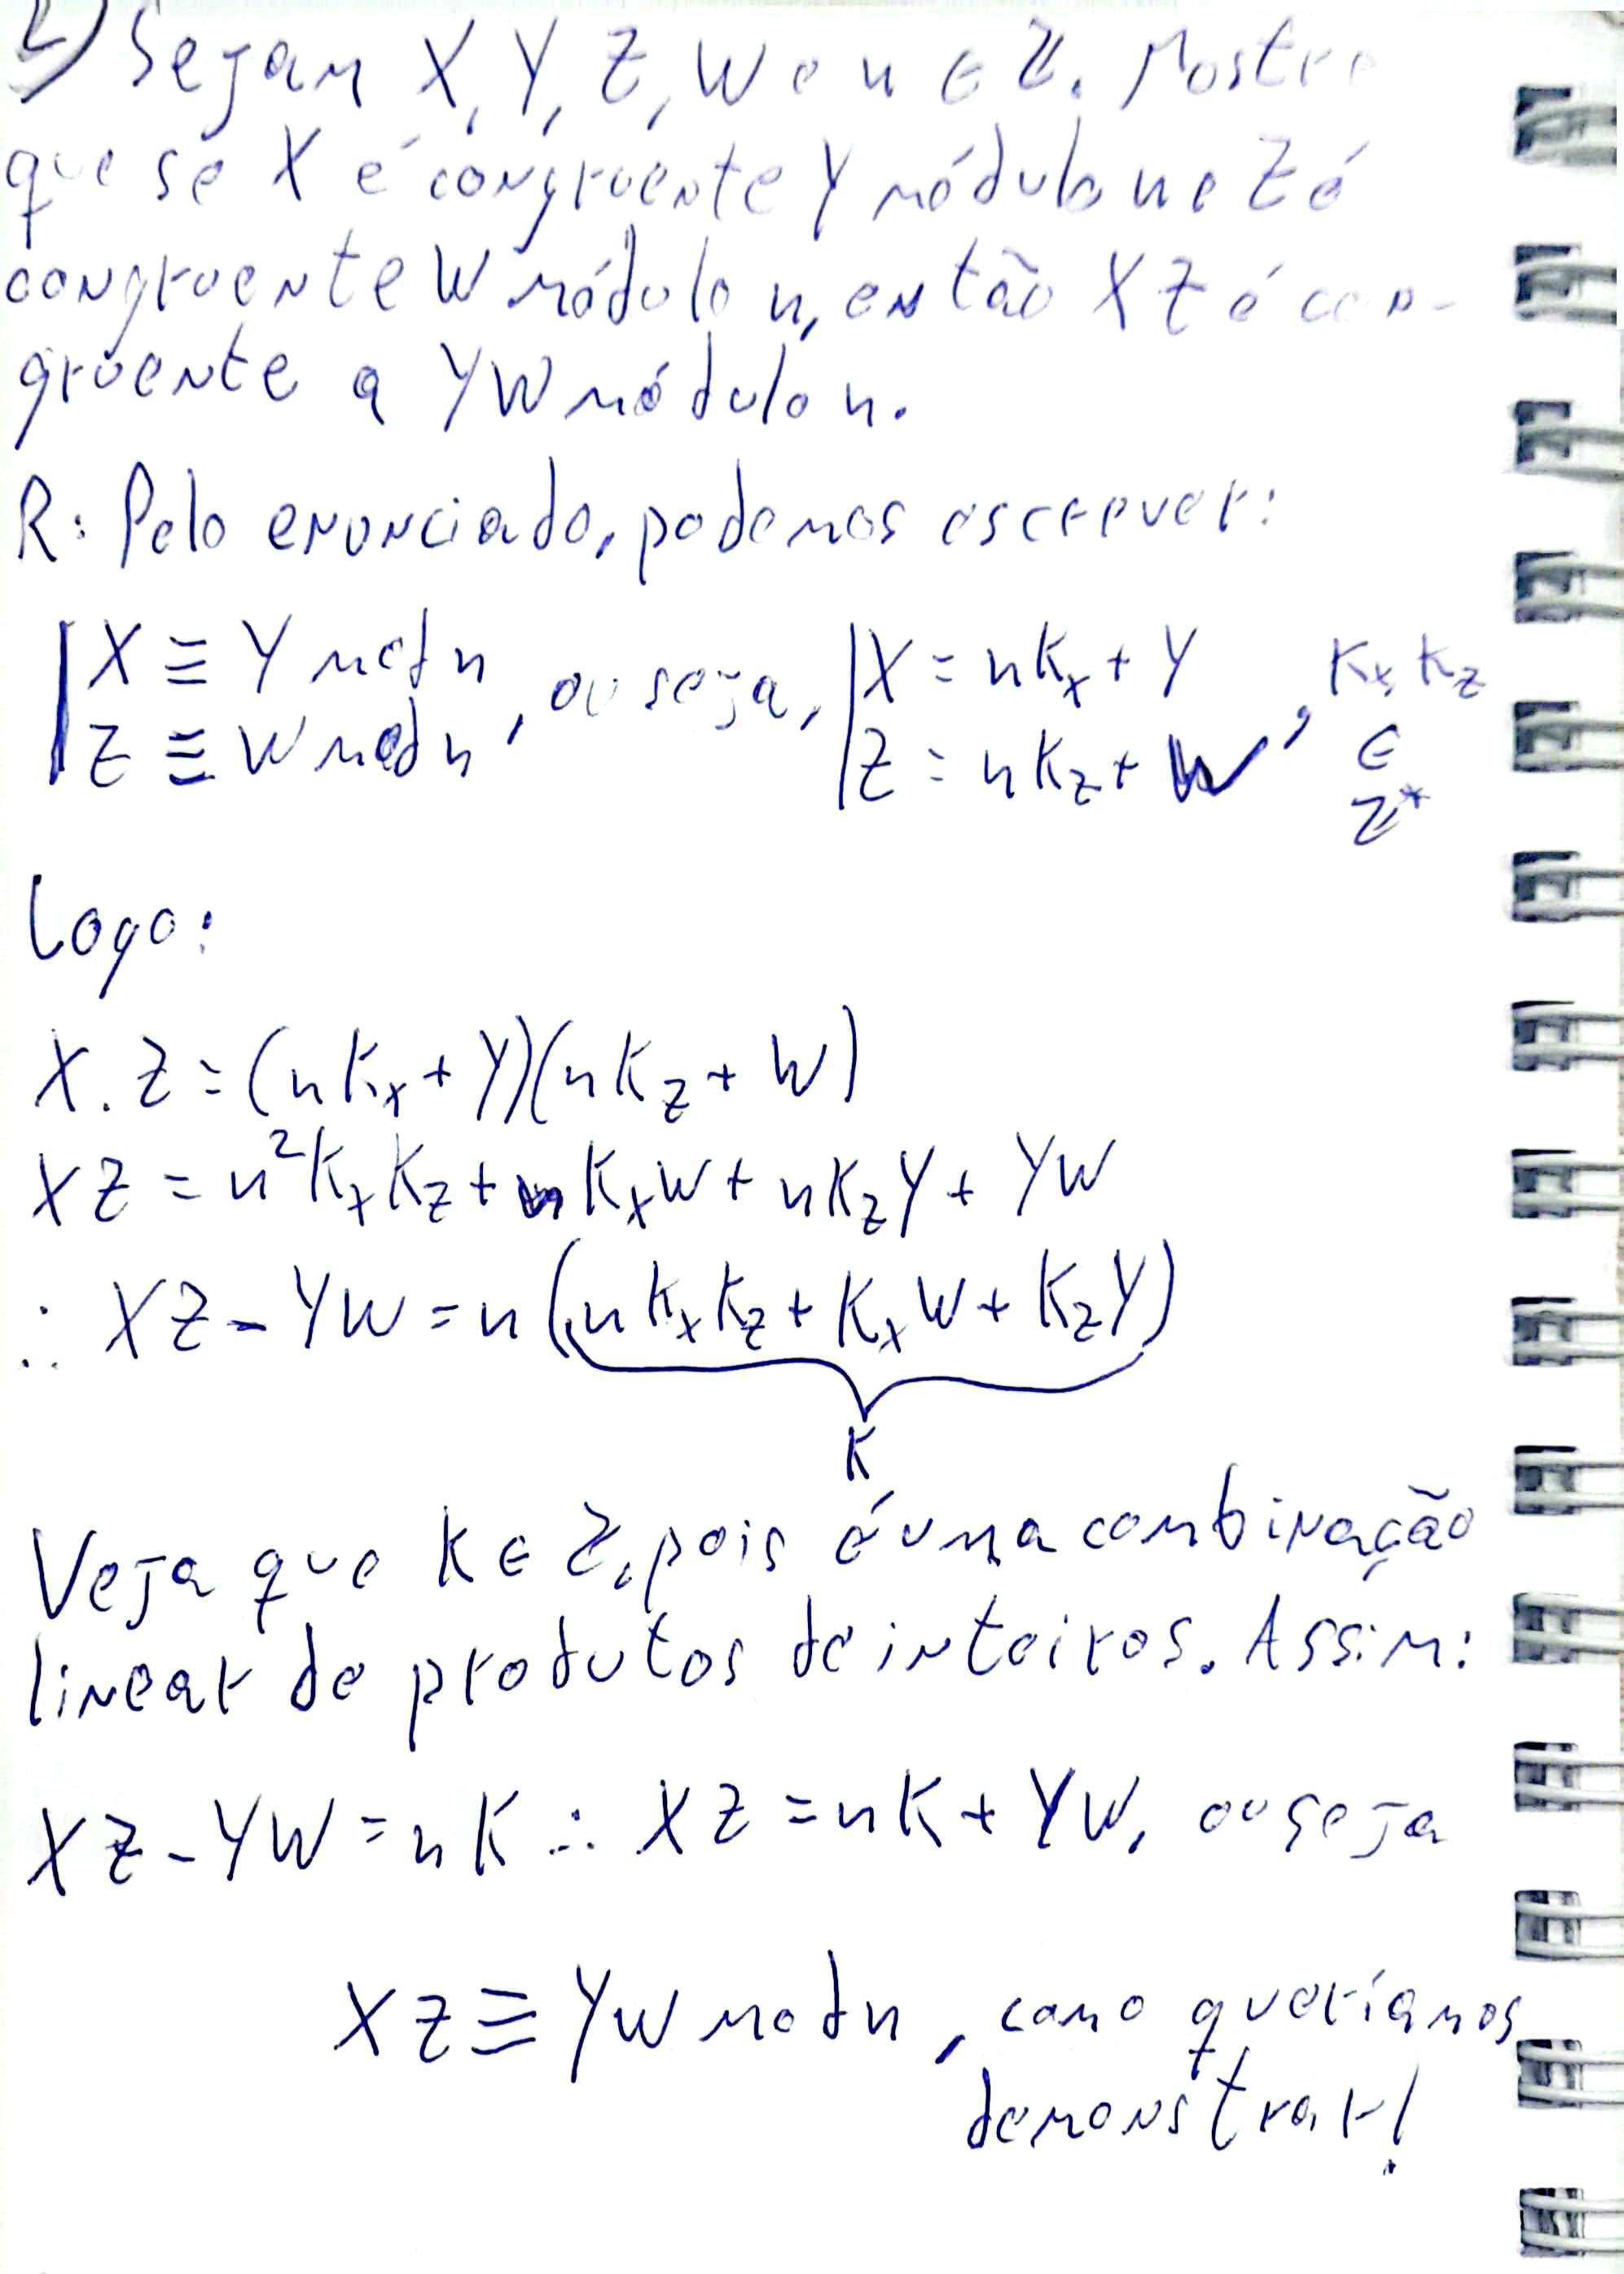 2) Sejam X, Y, Z, W e n ∈ Z. Mostre
que se X é congruente Y módulo n e Z é
congruente W módulo n, então XZ é con-
gruente a YW módulo n.
R: Pelo enunciado, podemos escrever:
| X ≡ Y mod n, ou seja, | X = nKx + Y, Kx, Kz
| Z ≡ W mod n | Z = nKz + W ∈
Z*
Logo:
X . Z = (nKx + Y)(nKz + W)
XZ = n²KxKz + nKxW + nKzY + YW
∴ XZ - YW = n(nKxKz + KxW + KzY)
K
Veja que K ∈ Z, pois é uma combinação
linear de produtos de inteiros. Assim:
XZ - YW = nK ∴ XZ = nK + YW, ou seja
XZ ≡ YW mod n, como queríamos
demonstrar!